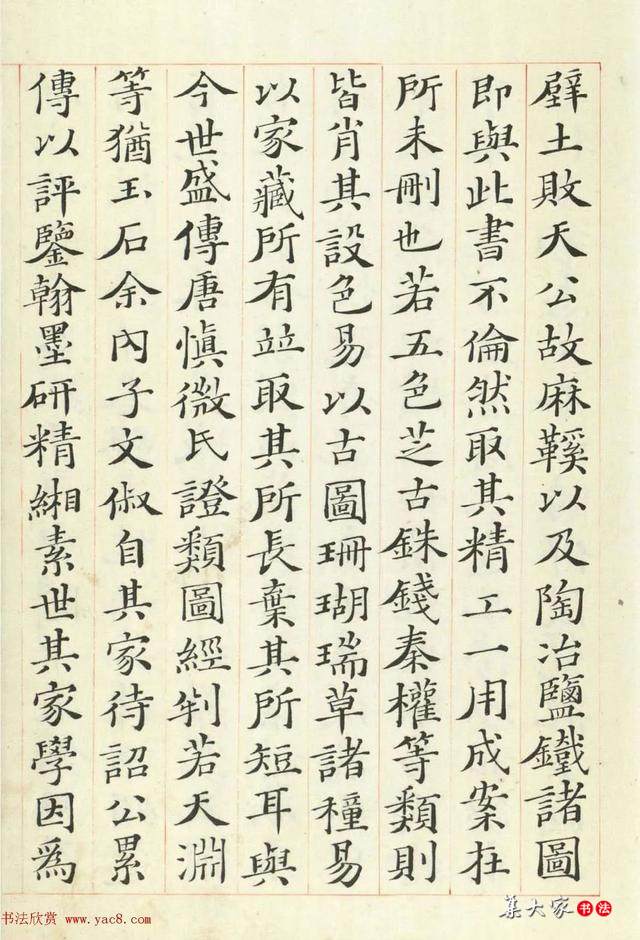 壁土敗天公故麻鞵以及陶冶鹽鐵諸圖
即與此書不倫然取其精工一用成案在
所未刪也若五色芝古銖錢秦權等類則
皆肖其設色易以古圖珊瑚瑞草諸種易
以家藏所有竝取其所長棄其所短耳與
今世盛傳唐慎微氏證類圖經判若天淵
等猶玉石余內子文俶自其家待詔公累
傳以評鑒翰墨研精緗素世其家學因為
书法欣赏 www.yac8.com
集大家书法